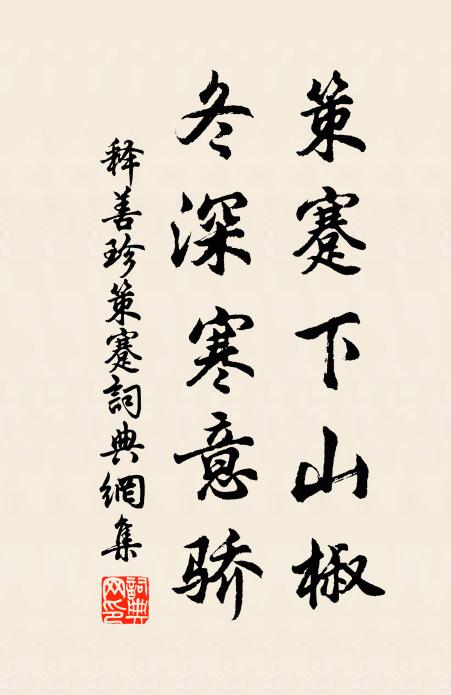 策蹇下山椒
冬深寒意骄
释善珍策蹇詞典網集
詞典网印